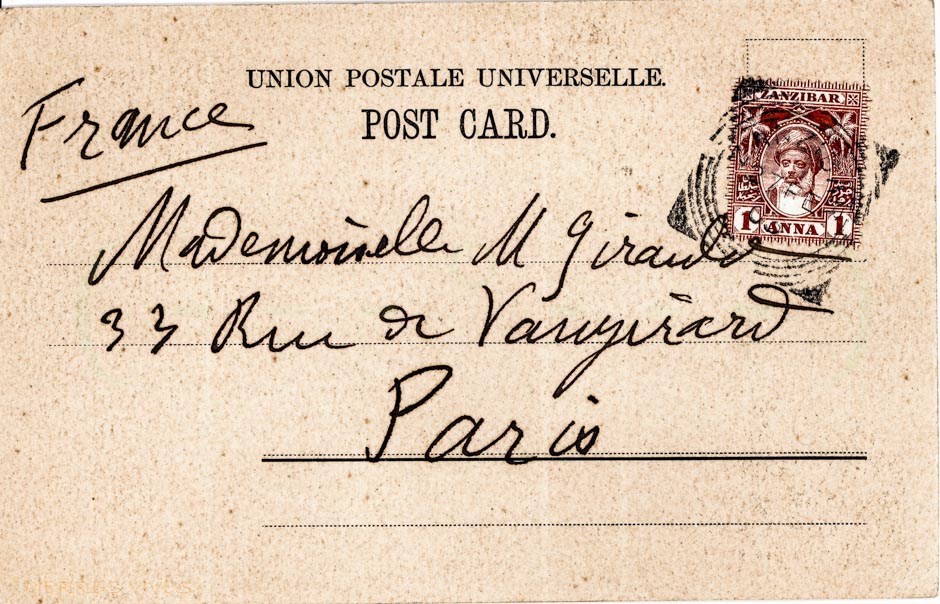 UNION POSTALE UNIVERSELLE.
POST CARD.
France
ZANZIBAR
1 ANNA 1
Mademoiselle M Giraud
33 Rue de Vaugirard
Paris